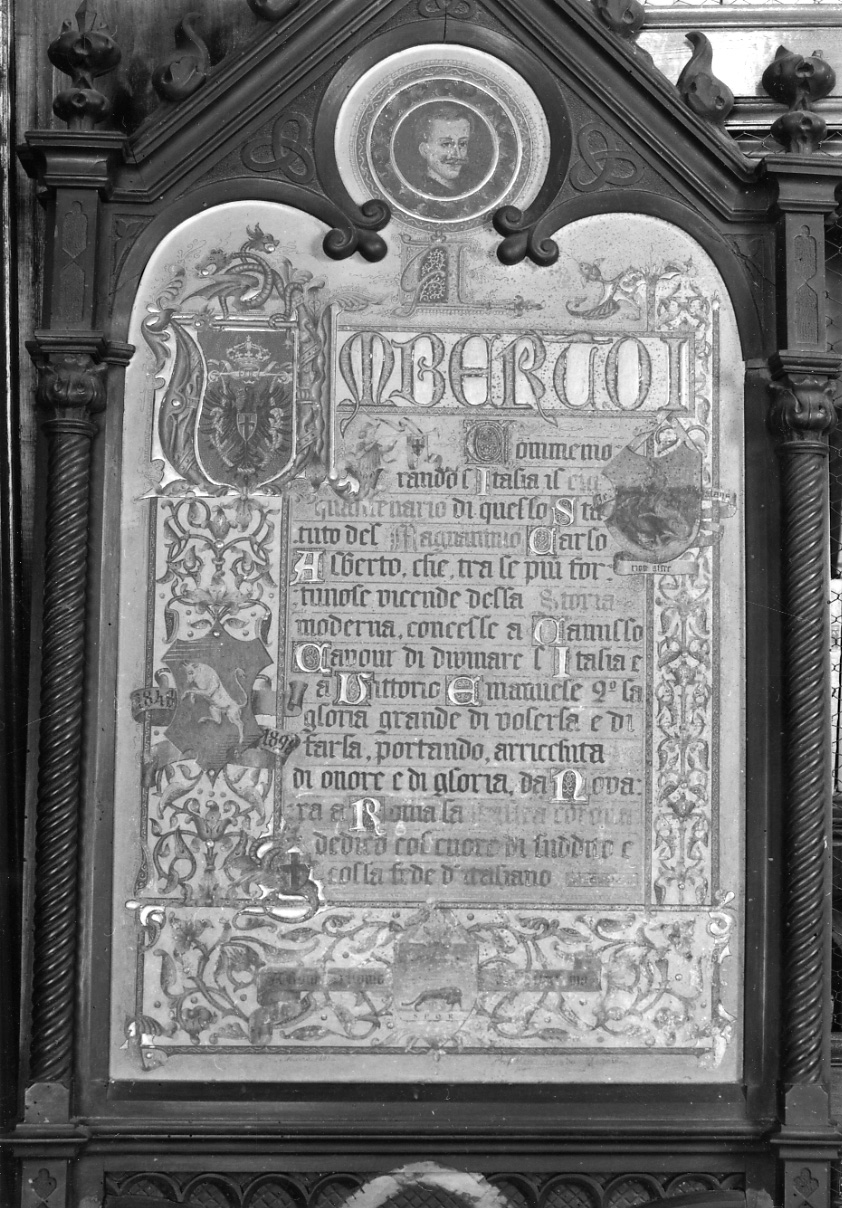 A
UMBERTO I
Commemo
rando l'Italia il cin
quantenario di quello Sta
tuto del Magnanimo Carlo
Alberto, che, tra le più for-
tunose vicende della Storia
moderna, concesse a Camillo
Cavour di divinare l'Italia e
a Vittorio Emanuele 2º la
gloria grande di volerla e di
farla, portando, arricchita
di onore e di gloria, da Nova-
ra a Roma la corona
dedico col cuore di suddito e
colla fede d'italiano
1848
1898
SPQR